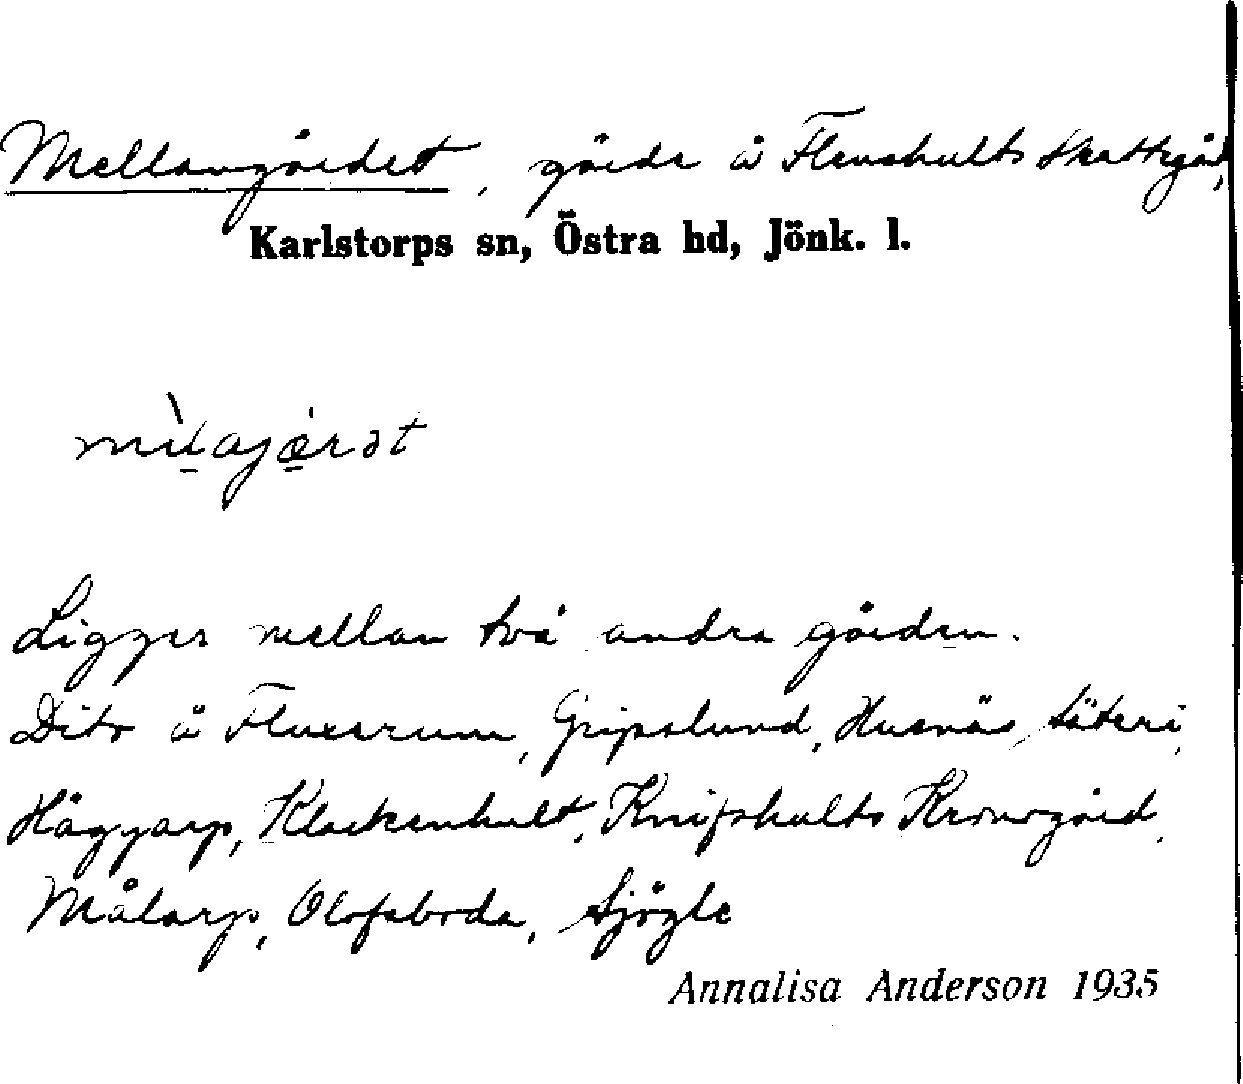 Mellangärdet, gärde å Flenshults Skattegård,
Karlstorps sn, Östra hd, Jönk. l.
Ligger mellan två andra gärden.
Dito å Fluxerum, Gripslund, Husnäs säteri,
Häggarp, Klackenhult, Knifshults Kronogård,
Målarp, Olofsboda, Sjögle
Annalisa Anderson 1935